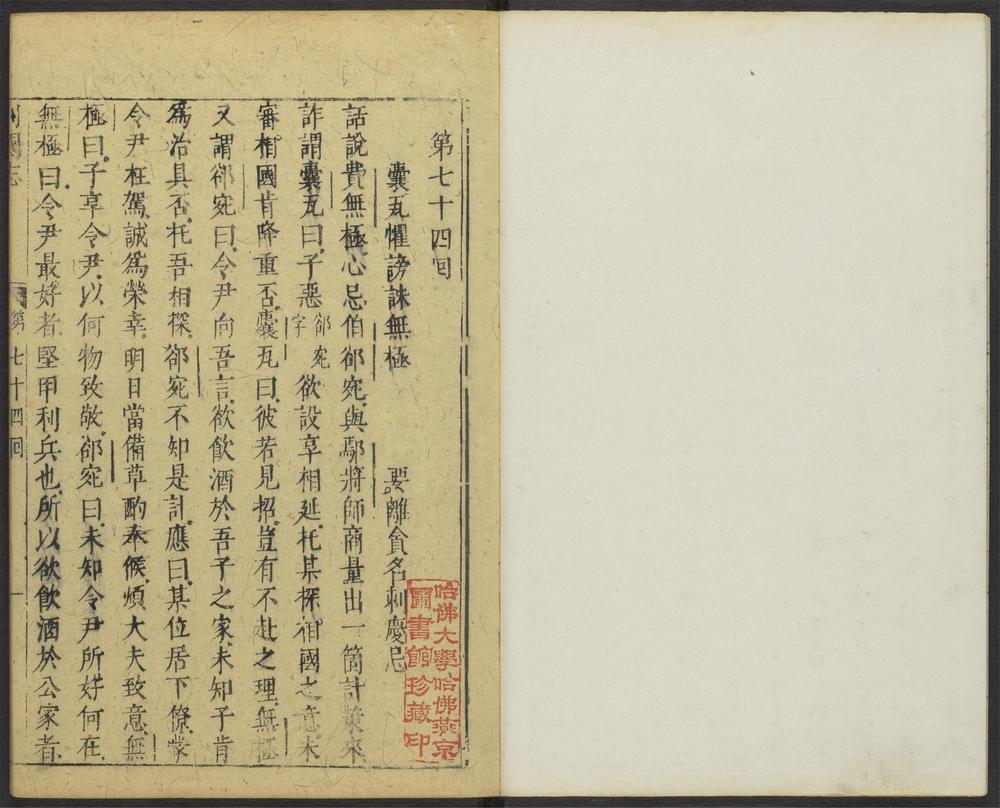 第七十四回
囊瓦懼謗誅無極　要離貪名刺慶忌
話說費無極心忌伯郤宛與鄢將師商量出一箇計策來
詐謂囊瓦曰子惡郤宛字欲設享相延托某探相國之意未
審相國肯降重否囊瓦曰彼若見招豈有不赴之理無極
又謂郤宛曰令尹向吾言欲飲酒於吾子之家未知子肯
爲治具否托吾相探郤宛不知是計應曰某位居下僚蒙
令尹枉駕誠爲榮幸明日當備草酌奉候煩大夫致意無
極曰子享令尹以何物致敬郤宛曰未知令尹所好何在
無極曰令尹最好者堅甲利兵也所以欲飲酒於公家者
列國志
第七十四回
一
哈佛大學哈佛燕京
圖書館珍藏印